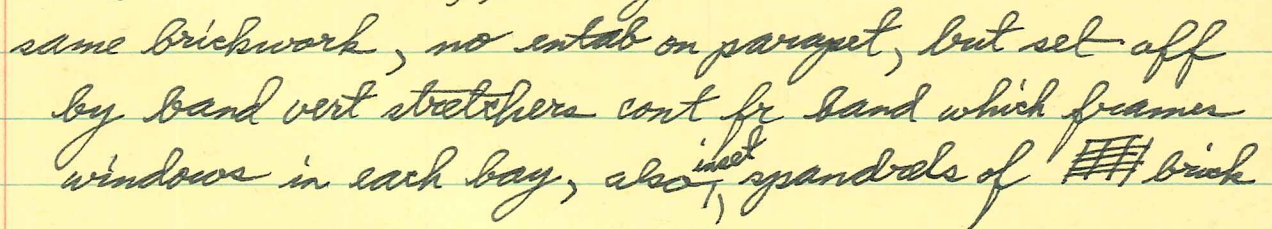 same brickwork, no entab on parapet, but set off
by band vert stretchers cont fr band which frames
windows in each bay, also, inset spandrels of brick